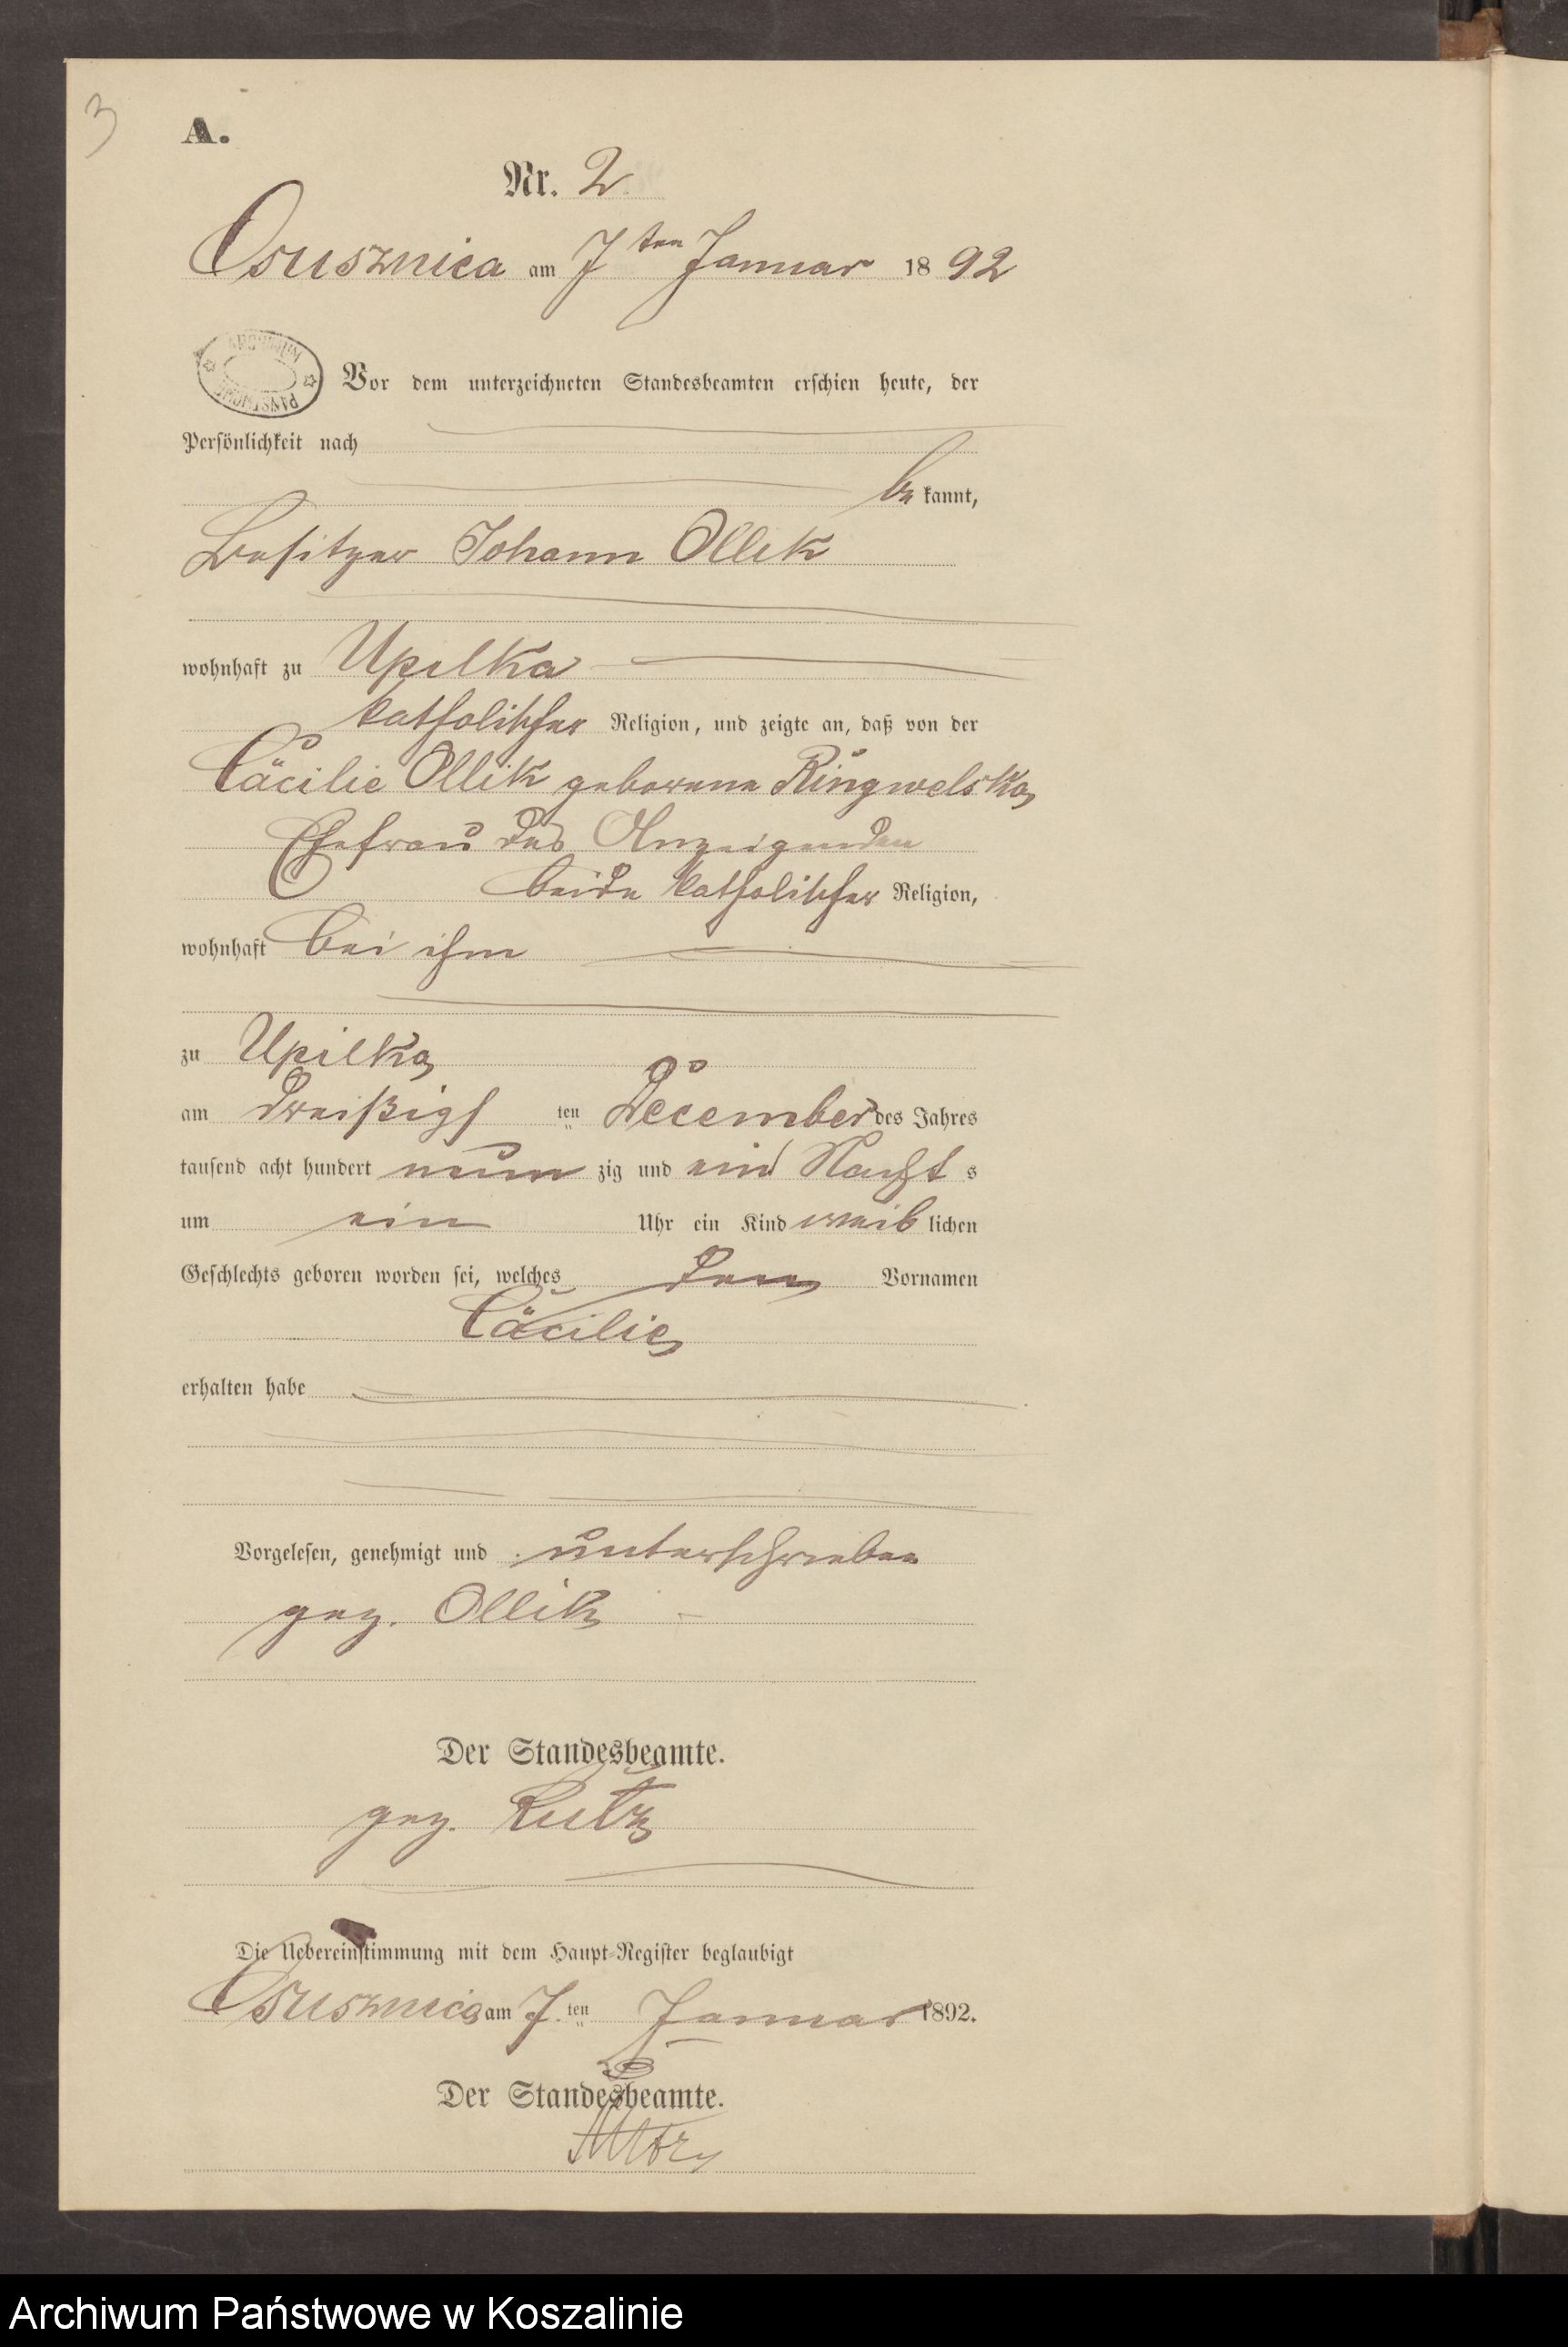 3
A.
Nr. 2
Osusznica am 7ten Januar 1892
Vor dem unterzeichneten Standesbeamten erschien heute, der
Persönlichkeit nach
be kannt,
Besitzer Johann Ollik
wohnhaft zu Upilka
katholischer Religion, und zeigte an, daß von der
Cäcilie Ollik geborene Ringwelska,
Ehefrau des Anzeigenden
beide katholischer Religion,
wohnhaft bei ihm
zu Upilka,
am dreißigsten December des Jahres
tausend acht hundert neunzig und eins Nachts
um ein Uhr ein Kind weiblichen
Geschlechts geboren worden sei, welches den Vornamen
Cäcilie
erhalten habe
Vorgelesen, genehmigt und unterschrieben
gez. Ollik
Der Standesbeamte.
gez. Kutz
Die Uebereinstimmung mit dem Haupt-Register beglaubigt
Osusznica am 7.ten Januar 1892.
Der Standesbeamte.
Archiwum Państwowe w Koszalinie